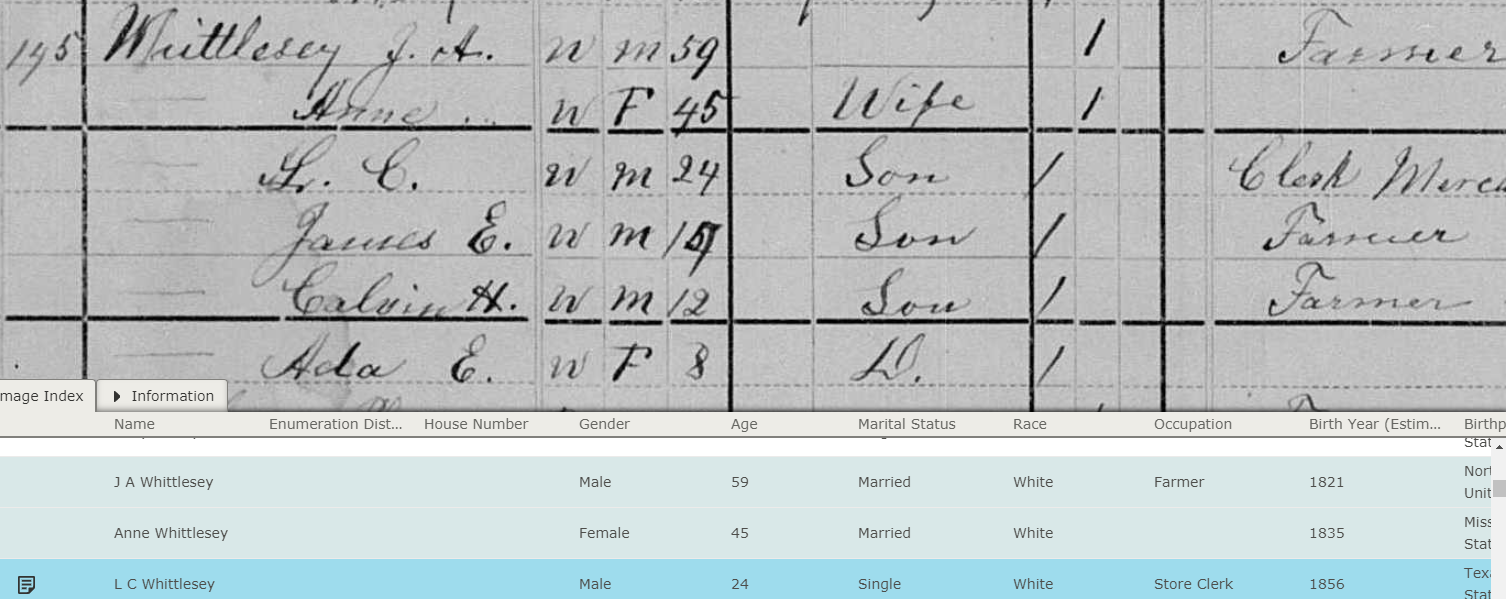 195 Whittlesey J. A. W M 59 1 Farmer
Anne W F 45 Wife 1
L. C. W M 24 Son 1 Clerk Merc
James E. W M 15 Son 1 Farmer
Calvin H. W M 12 Son 1 Farmer
Ada E. W F 8 D. 1
mage Index Information
Name Enumeration Dist... House Number Gender Age Marital Status Race Occupation Birth Year (Estim... Birthp
Stat
J A Whittlesey Male 59 Married White Farmer 1821 Nort
Unit
Anne Whittlesey Female 45 Married White 1835 Miss
Stat
L C Whittlesey Male 24 Single White Store Clerk 1856 Texa
Stat